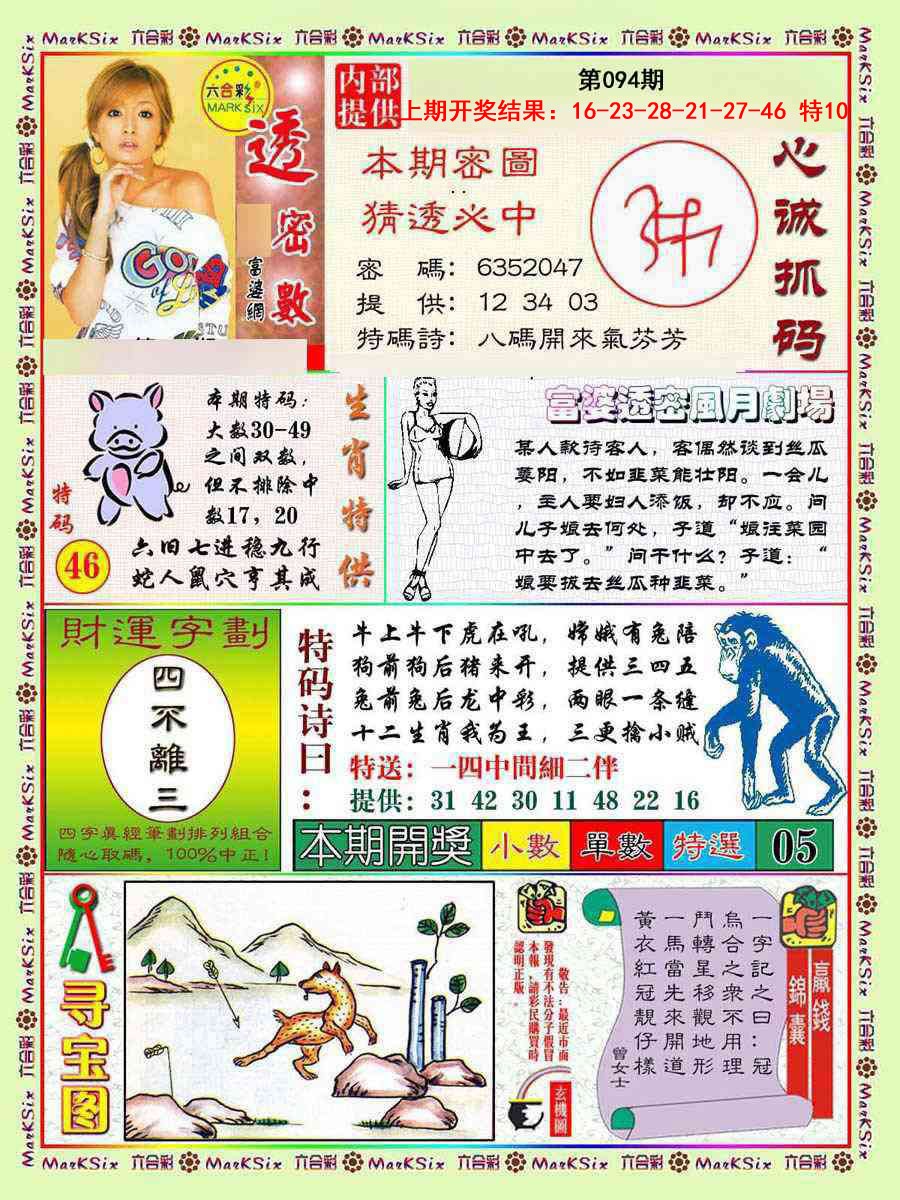 MarKSix 六合彩 MarKSix 六合彩 MarKSix 六合彩 MarKSix 六合彩 MarKSix 六合彩
六合彩
MARK SIX
透密數
富婆網
内部
提供
第094期
上期开奖结果：16-23-28-21-27-46 特10
本期密圖
猜透必中
密 碼：6352047
提 供：12 34 03
特碼詩：八碼開來氣芬芳
心诚抓码
特码
46
本期特码：
大数30-49
之间双数，
但不排除中
数17，20
六旧七进稳九行
蛇人鼠穴亨其成
生肖特供
富婆透密風月劇場
某人款待客人，客偶然谈到丝瓜
萎阳，不如韭菜能壮阳。一会儿
，主人要妇人添饭，却不应。问
儿子娘去何处，子道“娘往菜园
中去了。”问干什么？子道：“
娘要拔去丝瓜种韭菜。”
財運字劃
四不離三
四字真經筆劃排列組合
隨心取碼，100%中正！
特码诗曰：
牛上牛下虎在吼，嫦娥有兔陪
狗前狗后猪来开，提供三四五
兔前兔后龙中彩，两眼一条缝
十二生肖我为王，三更擒小贼
特送：一四中間細二伴
提供：31 42 30 11 48 22 16
本期開獎 小數 單數 特選 05
寻宝图
敬告：最近市面
發現有不法分子假冒
本報，請彩民購買時
認明正版。
玄機圖
一字記之曰：冠
烏合之衆不用理
鬥轉星移觀地形
一馬當先來開道
黃衣紅冠靚仔樣
曾女士
贏錢
錦囊
MarKSix 六合彩 MarKSix 六合彩 MarKSix 六合彩 MarKSix 六合彩 MarKSix 六合彩